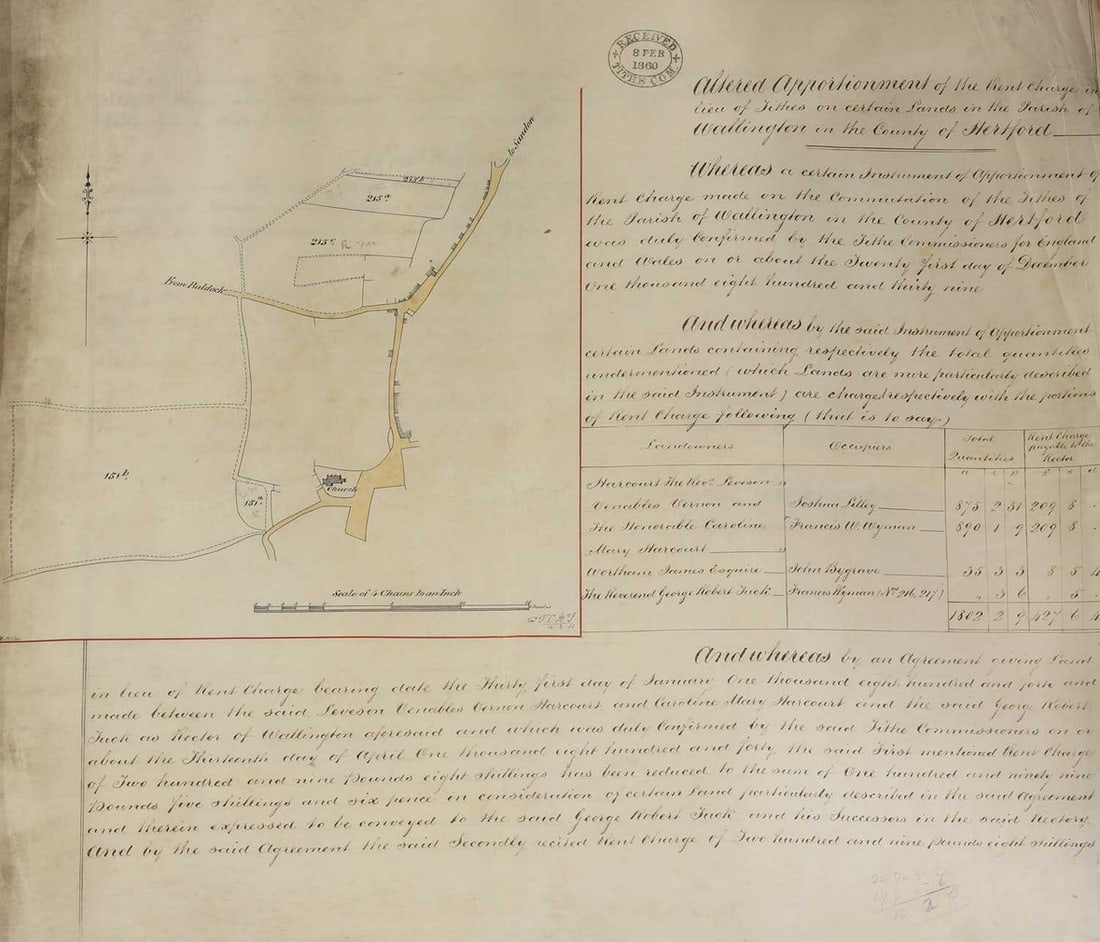 RECEIVED
8 FEB
1860
TITHE COM.
Altered Apportionment of the Rent Charge in
lieu of Tithes on certain Lands in the Parish of
Wallington in the County of Hertford
Whereas a certain Instrument of Apportionment of
Rent Charge made on the Commutation of the Tithes of
the Parish of Wallington in the County of Hertford
was duly Confirmed by the Tithe Commissioners for England
and Wales on or about the Twenty first day of December
One thousand eight hundred and thirty nine
And whereas by the said Instrument of Apportionment
certain Lands containing respectively the total quantities
undermentioned (which Lands are more particularly described
in the said Instrument) are charged respectively with the portions
of Rent Charge following (that is to say)
Landowners Occupiers Total Quantities Rent Charge payable to the Rector
a r p £ s d
Harcourt The Revd. Leveson
Venables Vernon and Joshua Lilley 875 2 31 209 8 .
The Honorable Caroline Francis W. Wyman 890 1 9 209 8 .
Mary Harcourt
Wortham James Esquire John Bygrave 35 3 3 8 5 4
The Reverend George Robert Tuck Francis Wyman (Nos. 216, 217) " 3 6 " 5 .
1802 2 9 427 6 4
to Sandon
215b
215a
215c
From Baldock
151b
151a
Church
Scale of 4 Chains to an Inch
Chains
And whereas by an Agreement giving Land
in lieu of Rent Charge bearing date the Thirty first day of January One thousand eight hundred and forty and
made between the said Leveson Venables Vernon Harcourt and Caroline Mary Harcourt and the said George Robert
Tuck as Rector of Wallington aforesaid and which was duly Confirmed by the said Tithe Commissioners on or
about the Thirteenth day of April One thousand eight hundred and forty the said First mentioned Rent Charge
of Two hundred and nine pounds eight shillings has been reduced to the sum of One hundred and ninety nine
pounds five shillings and six pence in consideration of certain Land particularly described in the said Agreement
and therein expressed to be conveyed to the said George Robert Tuck and his Successors in the said Rectory
And by the said Agreement the said Secondly recited Rent Charge of Two hundred and nine pounds eight shillings